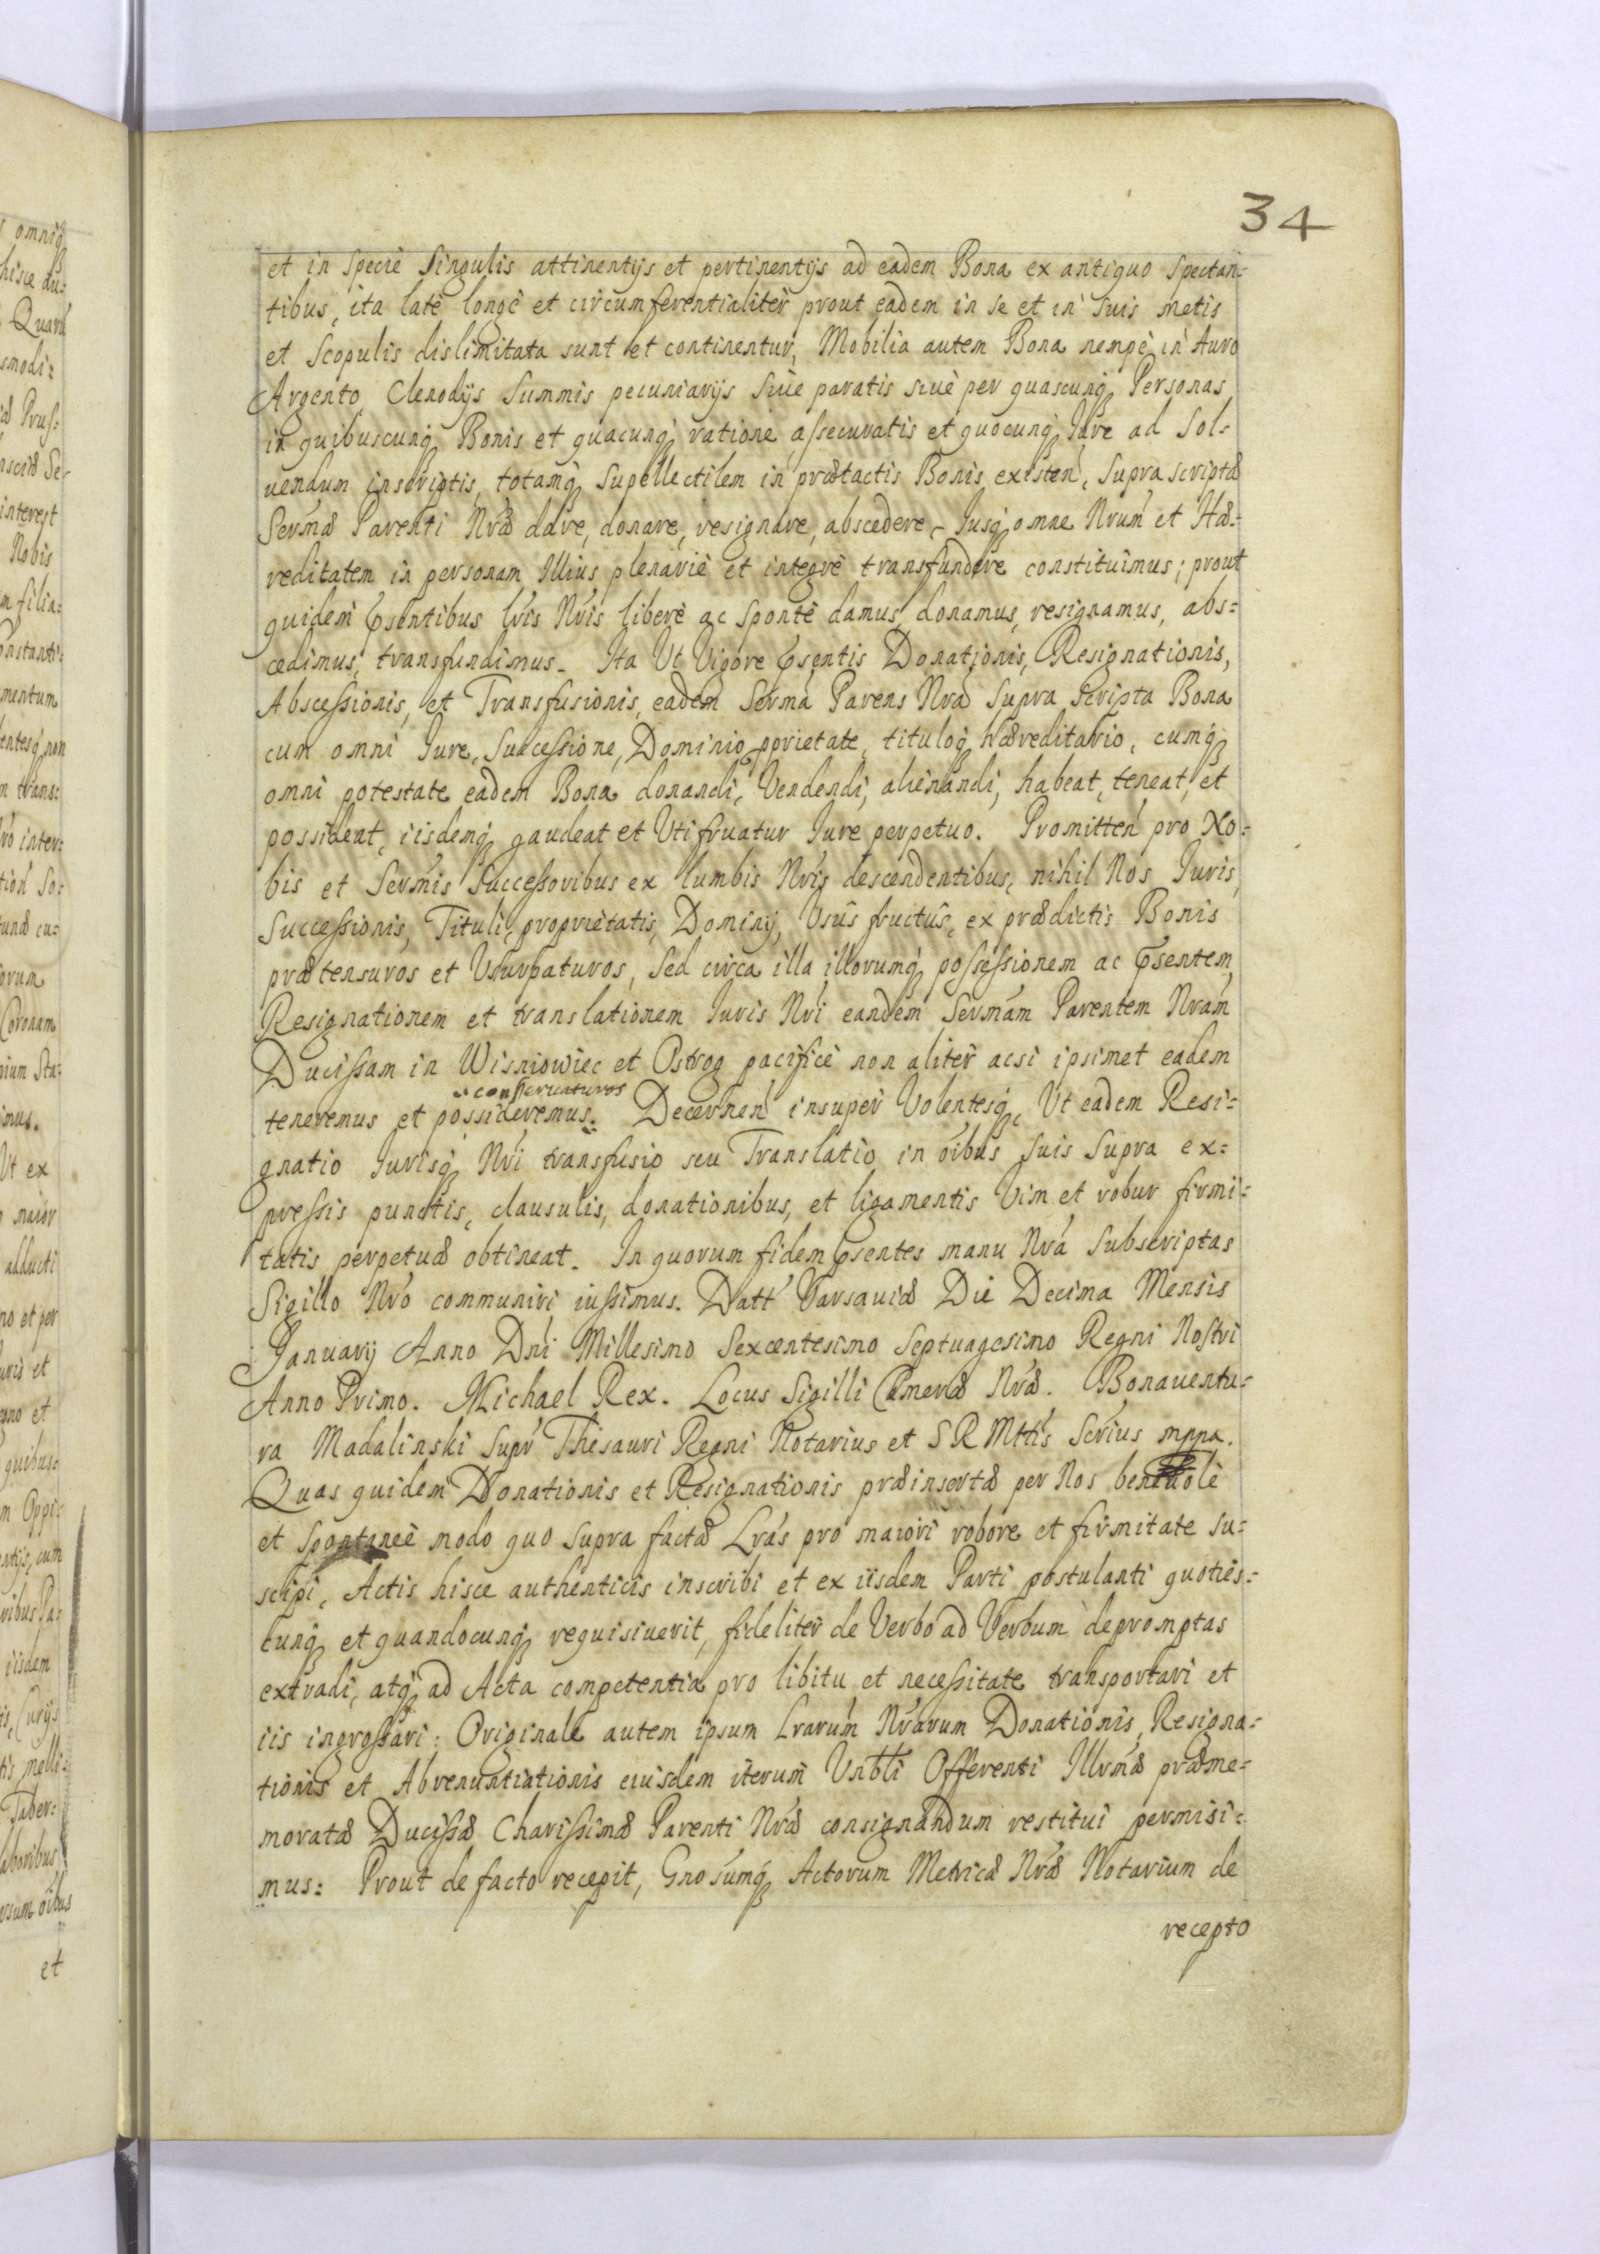 34
et in specie singulis attinentijs et pertinentijs ad eadem Bona ex antiquo spectan=
tibus, ita latè longè et circumferentialiter prout eadem in se et in suis metis
et scopulis dislimitata sunt et continentur, Mobilia autem Bona nempè in Auro
Argento Clenodijs Summis pecuniarijs siuè paratis siuè per quascunq3 Personas
in quibuscunq3 Bonis et quacunq3 ratione assecuratis et quocunq3 Jure ad sol=
uendum inscriptis, totamq3 supellectilem in prætactis Bonis existen, supra scriptæ
Sermæ Parenti Nræ dare, donare, resignare, abscedere, Jusq3 omne Nrum et Hæ=
reditatem in personam Illius plenariè et integrè transfundere constituimus; prout
quidem Pn̄sentibus lris Nris liberè ac spontè damus, donamus, resignamus, abs=
cedimus, transfundimus. Ita Ut Vigore psentis Donationis, Resignationis,
Abscessionis, et Transfusionis, eadem Serma Parens Nra supra scripta Bona
cum omni Jure, Successione, Dominio, pprietate, tituloq3 hæreditario, cumq3
omni potestate eadem Bona donandi, Vendendi, alienandi, habeat, teneat, et
possideat, iisdemq3 gaudeat et Utifruatur Jure perpetuo. Promitten pro No=
bis et Sermis Successoribus ex lumbis Nris descendentibus, nihil Nos Juris,
Successionis, Tituli, proprietatis, Dominij, Usûs fructûs, ex prædictis Bonis
prætensuros et Usurpaturos, sed circa illa illorumq3 possessionem ac psentem,
Resignationem et translationem Juris Nri eandem Sermam Parentem Nram
Ducissam in Wisniowiec et Ostrog pacificè non aliter acsi ipsimet eadem
conseruaturos
teneremus et possideremus. Decernen insuper Volentesq3, Ut eadem Resi=
gnatio Jurisq3 Nri transfusio seu Translatio in oibus suis supra ex=
pressis punctis, clausulis, donationibus, et ligamentis Vim et robur firmi=
tatis perpetuæ obtineat. In quorum fidem psentes manu Nra subscriptas
Sigillo Nro communiri iussimus. Datt Varsauiæ Die Decima Mensis
Januarij Anno Dni Millesimo Sexcentesimo Septuagesimo Regni Nostri
Anno Primo. Michael Rex. Locus Sigilli Cameræ Nræ. Bonauentu=
ra Madalinski Supr Thesauri Regni Notarius et S R Mttis Scrius mppa.
Quas quidem Donationis et Resignationis præinsertæ per Nos beneuolè
et spontaneè modo quo supra factæ Lras pro maiori robore et firmitate su=
scipi, Actis hisce authenticis inscribi et ex iisdem Parti postulanti quoties=
cunq3 et quandocunq3 requisiuerit, fideliter de Verbo ad Verbum depromptas
extradi, atq3 ad Acta competentia pro libitu et necessitate transportari et
iis ingrossari: Originale autem ipsum Lrarum Nrarum Donationis, Resigna=
tionis et Abrenuntiationis eiusdem iterum Unbli Offerenti Illrmæ præme=
moratæ Ducissæ Charissimæ Parenti Nræ consignandum restitui permisi=
mus: Prout de facto recepit, Gnosumq3 Actorum Metricæ Nræ Notarium de
recepto